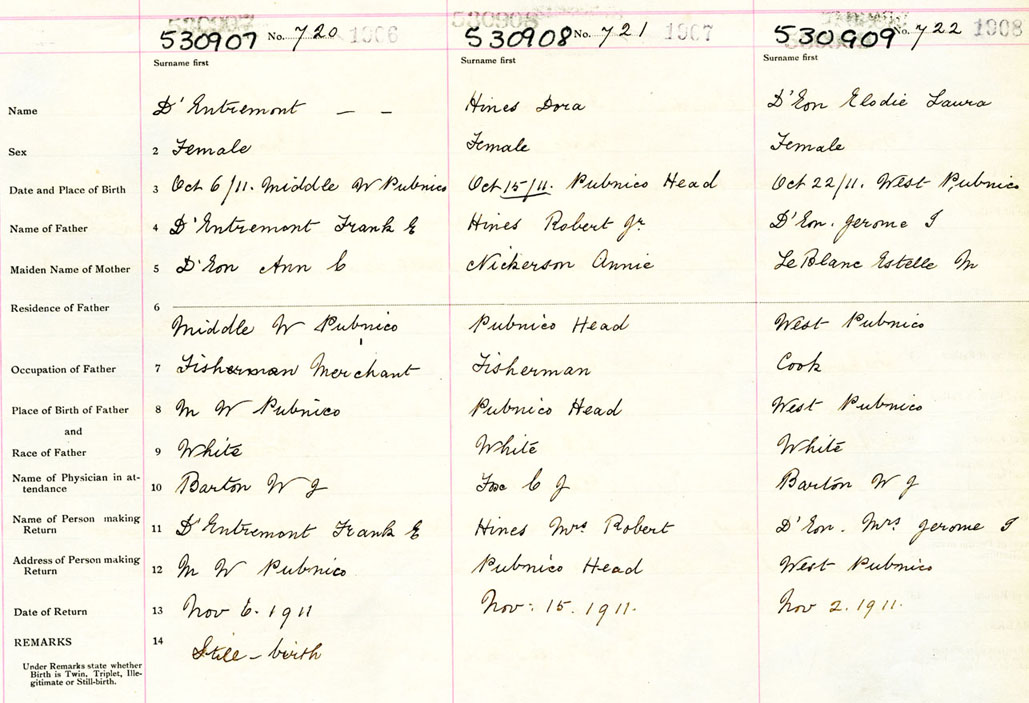 530907 No. 720 1906 530908 No. 721 1907 530909 No. 722 1908
Surname first Surname first Surname first
Name D'Entremont — – Hines Dora D'Eon Elodie Laura
Sex 2 Female Female Female
Date and Place of Birth 3 Oct 6/11. Middle W Pubnico Oct 15/11. Pubnico Head Oct 22/11. West Pubnico
Name of Father 4 D'Entremont Frank E Hines Robert Jr. D'Eon. Jerome I
Maiden Name of Mother 5 D'Eon Ann C Nickerson Annie LeBlanc Estelle M
Residence of Father 6
Middle W Pubnico Pubnico Head West Pubnico
Occupation of Father 7 Fisherman Merchant Fisherman Cook
Place of Birth of Father 8 M W Pubnico Pubnico Head West Pubnico
and
Race of Father 9 White White White
Name of Physician in at-
tendance 10 Barton W J Fox C J Barton W J
Name of Person making
Return 11 D'Entremont Frank E Hines Mrs Robert D'Eon. Mrs Jerome I
Address of Person making
Return 12 M W Pubnico Pubnico Head West Pubnico
Date of Return 13 Nov 6. 1911 Nov: 15. 1911. Nov 2. 1911.
REMARKS 14 Still-birth
Under Remarks state whether
Birth is Twin, Triplet, Ille-
gitimate or Still-birth.